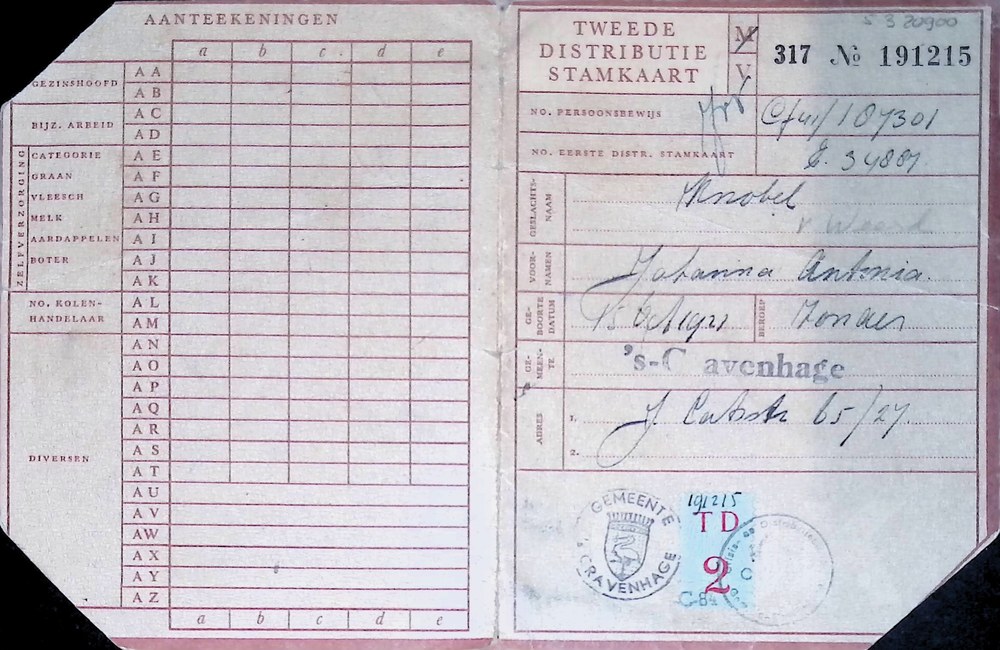 AANTEEKENINGEN
a b c d e
GEZINSHOOFD
A A
A B
BIJZ. ARBEID
A C
A D
ZELFVERZORGING
CATEGORIE A E
GRAAN A F
VLEESCH A G
MELK A H
AARDAPPELEN A I
BOTER A J
A K
NO. KOLEN-
HANDELAAR
A L
A M
A N
A O
A P
A Q
A R
DIVERSEN A S
A T
A U
A V
A W
A X
A Y
A Z
a b c d e
S 3 20900
TWEEDE
DISTRIBUTIE
STAMKAART
M
V
317 № 191215
NO. PERSOONSBEWIJS
187301
NO. EERSTE DISTR. STAMKAART
GESLACHTS-
NAAM
Knobel
v Weard
VOOR-
NAMEN
Johanna Antonia.
GE-
BOORTE
DATUM
15 Oct 1921
BEROEP
Zonder
GE-
MEEN-
TE
's-G avenhage
ADRES
1. J. Catsstr 65/27.
2.
GEMEENTE
'S GRAVENHAGE
191215
T D
2
C
C-84